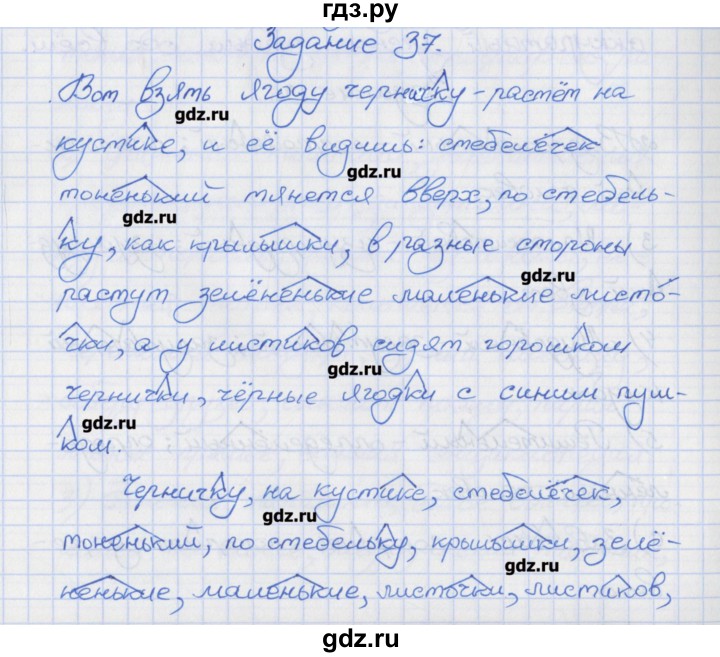 гдз.ру
Задание 37.
Вот взять ягоду черничку - растёт на
gdz.ru
кустике, и её видишь: стебелёчек
gdz.ru
тоненький тянется вверх, по стебель-
gdz.ru
ку, как крылышки, в разные стороны
gdz.ru
растут зелёненькие маленькие листо-
чки, а у листиков сидят горошком
gdz.ru
чернички, чёрные ягодки с синим пуш-
gdz.ru
ком.
Черничку, на кустике, стебелёчек,
gdz.ru
тоненький, по стебельку, крылышки, зелё-
gdz.ru
ненькие, маленькие, листочки, листиков,
gdz.ru